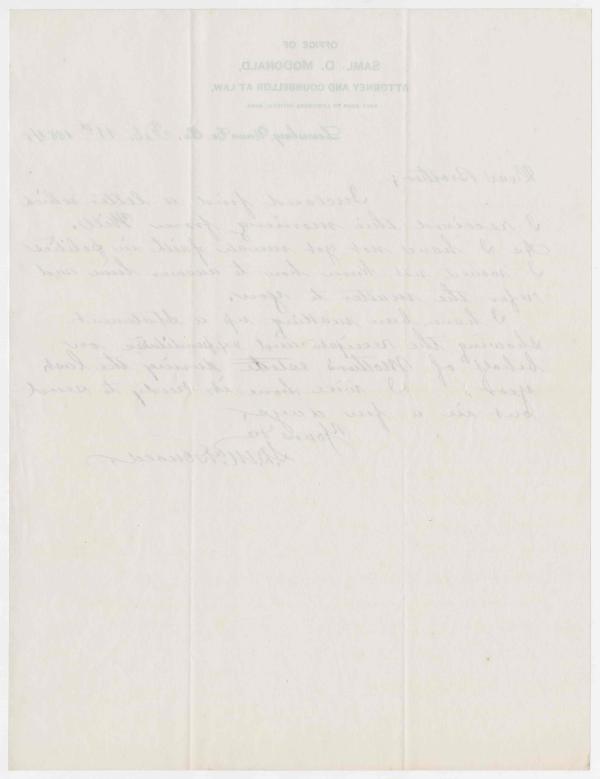 OFFICE OF
SAML. D. McDONALD,
ATTORNEY AND COUNSELLOR AT LAW,
Feb. 11th 188
Dear Brother;
Inclosed find a letter which
I received this morning from Will.
As I have not got much faith in politics
I would not know how to answer him and
refer the matter to you.
I have been making up a statement
showing the receipts and expenditures on
behalf of Mother's estate during the last
year. I will have it ready to send
out in a few days.
Yours &c
S. D. McDonald